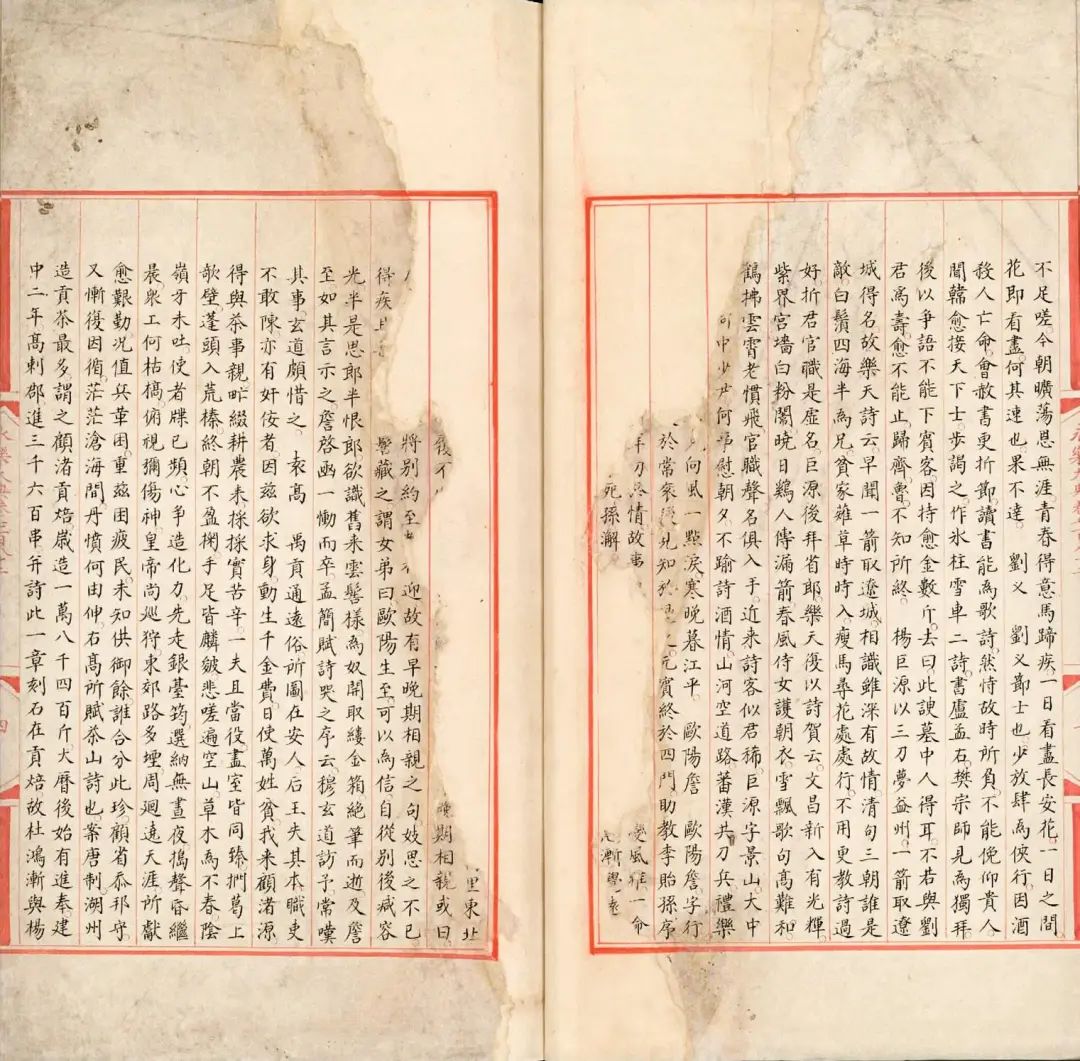 不足嗟今朝曠蕩恩無涯青春得意馬蹄疾一日看盡長安花一日之間
花即看盡何其速也果不達 劉乂 劉乂節士也少放肆為俠行因酒
殺人亡命會赦書更折節讀書能為歌詩然恃故時所負不能俛仰貴人
聞韓愈接天下士步謁之作氷柱雪車二詩書盧孟右樊宗師見為獨拜
後以爭語不能下賓客因持愈金數斤去曰此諛墓中人得耳不若與劉
君為壽愈不能止歸齊魯不知所終 楊巨源以三刀夢益州一箭取遼
城得名故樂天詩云早聞一箭取遼城相識雖深有故情清句三朝誰是
敵白鬚四海半為兄貧家薙草時時入瘦馬尋花處處行不用更教詩過
好折君官職是虛名巨源後拜省郎樂天復以詩賀云文昌新入有光輝
紫界宮墻白粉闈曉日鷄人傳漏箭春風侍女護朝衣雪飄歌句高難和
鶴拂雲霄老慣飛官職聲名俱入手近来詩客似君稀巨源字景山大中
中少尹何慰朝夕不踰詩酒情山河空道路蕃漢共刀兵禮樂
向風一點淚寒晚暮江平 歐陽詹 歐陽詹字行
於常衮見知於之元賓終於四門助教李貽孫序
情故變風雅一命
死孫澥
里東北
後不期相親或曰
將別約至迎故有早晚期相親之句妓思之不已
得疾髻藏之謂女弟曰歐陽生至可以為信自從別後減容
光半是思郎半恨郎欲識舊来雲髻樣為奴開取縷金箱絕筆而逝及詹
至如其言示之詹啓函一慟而卒孟簡賦詩哭之序云穆玄道訪予常嘆
其事玄道頗惜之 袁高 禹貢通遠俗所圖在安人后王失其本職吏
不敢陳亦有奸佞者因茲欲求身動生千金費日使萬姓貧我来顧渚源
得與茶事親甿綴耕農耒採採實苦辛一夫且當役盡室皆同臻捫葛上
欹壁蓬頭入荒榛終朝不盈掬手足皆鱗皴悲嗟遍空山草木為不春陰
嶺牙未吐使者牒已頻心爭造化力先走銀臺筠選納無晝夜搗聲昏繼
晨衆工何枯槁俯視彌傷神皇帝尚巡狩東郊路多堙周迴遠天涯所獻
愈艱勤况值兵革困重茲困疲民未知供御餘誰合分此珍顧省忝邦守
又慚復因循茫茫滄海間丹憤何由伸右高所賦茶山詩也案唐制湖州
造貢茶最多謂之顧渚貢焙嵗造一萬八千四百斤大曆後始有進奉建
中二年高刺郡進三千六百串并詩此一章刻石在貢焙故杜鴻漸與楊
四